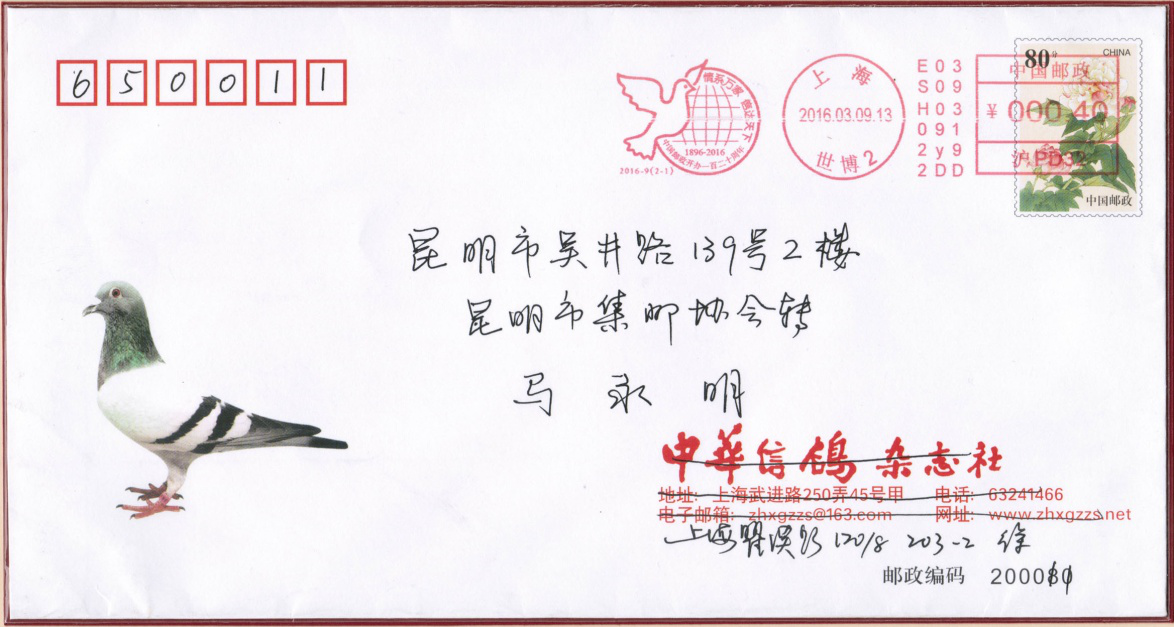 650011
情系万家 信达天下
1896-2016
中国邮政开办一百二十周年
2016-9(2-1)
上海
2016.03.09.13
世博2
E03
S09
H03
091
2y9
2DD
80分
CHINA
中国邮政
¥000.40
沪.PD32
中国邮政
昆明市吴井路139号2楼
昆明市集邮协会转
马永明
中华信鸽杂志社
地址: 上海武进路250弄45号甲 电话: 63241466
电子邮箱: zhxgzzs@163.com 网址: www.zhxgzzs.net
上海瞿溪路120/8 203-2 徐
邮政编码 2000